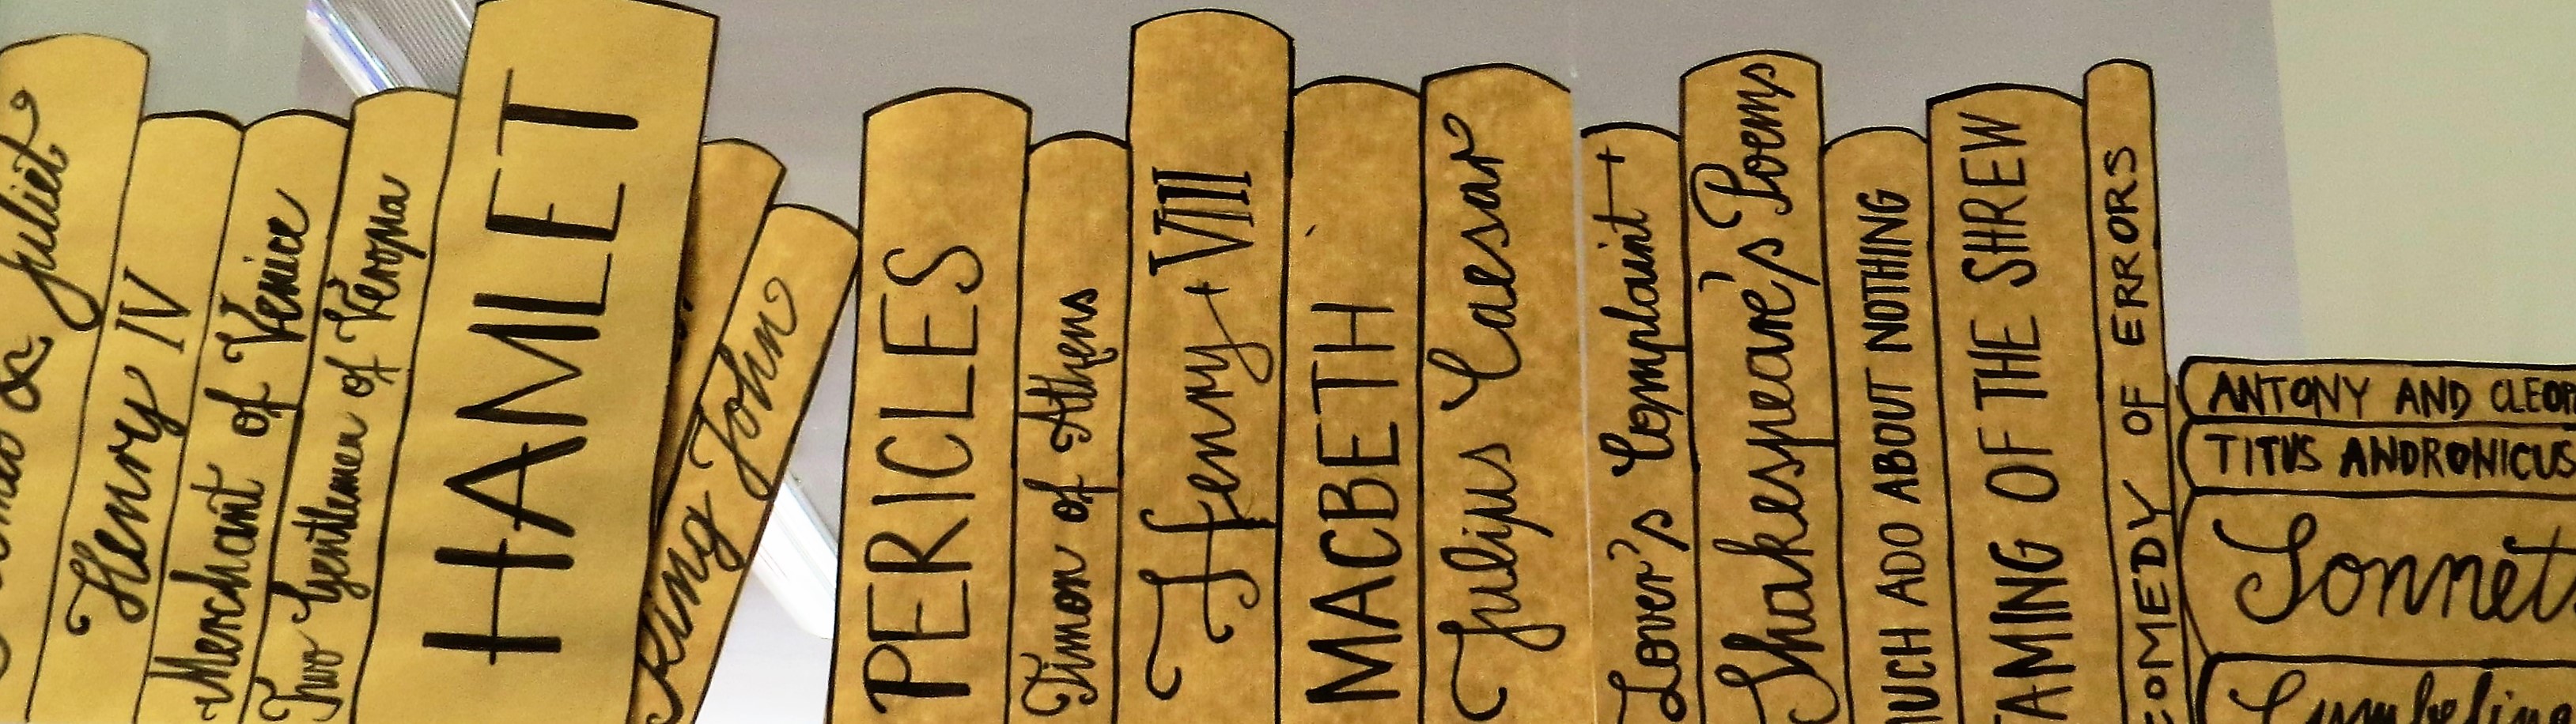 Juliet
Henry IV
Merchant of Venice
Two Gentlemen of Verona
HAMLET
King John
PERICLES
Timon of Athens
Henry VIII
MACBETH
Julius Caesar
Lover's Complaint
Shakespeare's Poems
MUCH ADO ABOUT NOTHING
TAMING OF THE SHREW
COMEDY OF ERRORS
ANTONY AND CLEOP
TITUS ANDRONICUS
Sonnet
Cymbeline